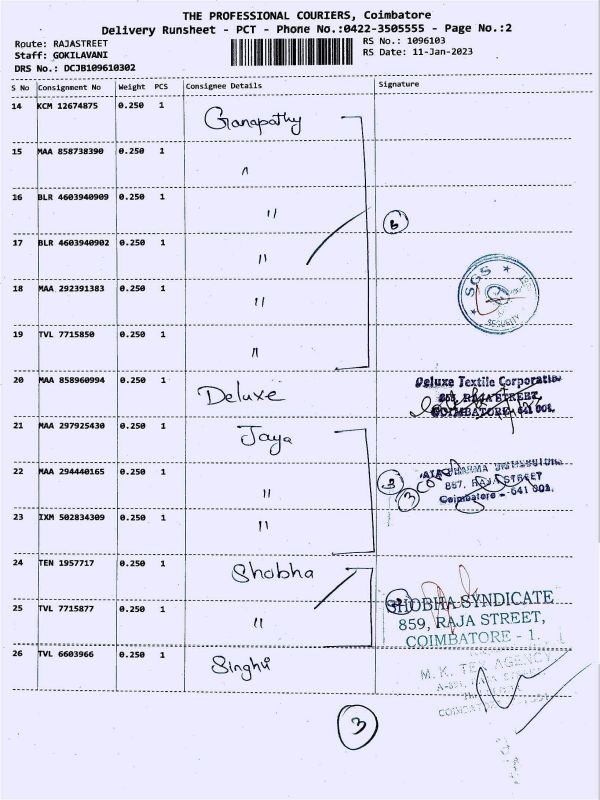 THE PROFESSIONAL COURIERS, Coimbatore
Delivery Runsheet - PCT - Phone No.:0422-3505555 - Page No.:2
Route: RAJASTREET
RS No.: 1096103
Staff: GOKILAVANI
RS Date: 11-Jan-2023
DRS No.: DCJB109610302
S No Consignment No Weight PCS Consignee Details Signature
14 KCM 12674875 0.250 1 Ganapathy
15 MAA 858738390 0.250 1 "
16 BLR 4603940909 0.250 1 "
6
17 BLR 4603940902 0.250 1 "
18 MAA 292391383 0.250 1 "
SGS
SECURITY
19 TVL 7715850 0.250 1 "
20 MAA 858960994 0.250 1 Deluxe
Deluxe Textile Corporation
RAJA STREET,
COIMBATORE - 641 001.
21 MAA 297925430 0.250 1 Jaya
22 MAA 294440165 0.250 1 "
3
3
PHARMA
867, RAJA STREET
Coimbatore - 641 001.
23 IXM 502834309 0.250 1 "
24 TEN 1957717 0.250 1 Shobha
SHOBHA SYNDICATE
25 TVL 7715877 0.250 1 "
859, RAJA STREET,
COIMBATORE - 1.
26 TVL 6603966 0.250 1 Singhvi
M. K. TEX AGENCY
3